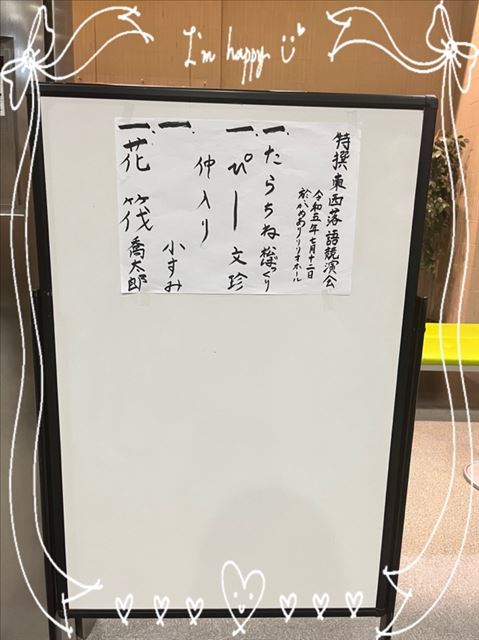 I'm happy
特撰東西落語競演会
令和五年七月十二日
於:かめありリリオホール
一.たらちね 松ぼっくり
一.ぴー 文珍
仲入り
一. 小すみ
一.花筏 喬太郎